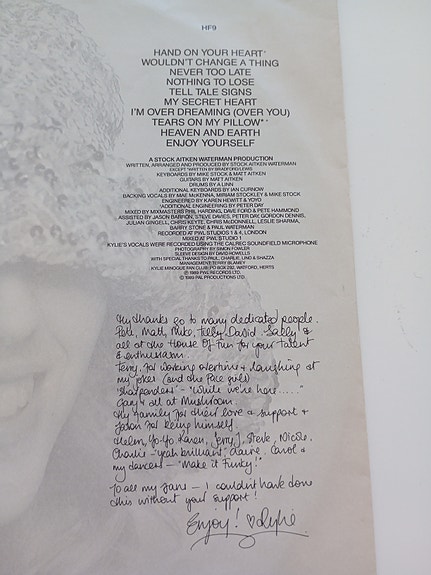 HF9
HAND ON YOUR HEART*
WOULDN'T CHANGE A THING
NEVER TOO LATE
NOTHING TO LOSE
TELL TALE SIGNS
MY SECRET HEART
I'M OVER DREAMING (OVER YOU)
TEARS ON MY PILLOW**
HEAVEN AND EARTH
ENJOY YOURSELF
A STOCK AITKEN WATERMAN PRODUCTION
WRITTEN, ARRANGED AND PRODUCED BY STOCK AITKEN WATERMAN
EXCEPT **WRITTEN BY BRADFORD/LEWIS
KEYBOARDS BY MIKE STOCK & MATT AITKEN
GUITARS BY MATT AITKEN
DRUMS BY A LINN
ADDITIONAL KEYBOARDS BY IAN CURNOW
BACKING VOCALS BY MAE McKENNA, MIRIAM STOCKLEY & MIKE STOCK
ENGINEERED BY KAREN HEWITT & YOYO
*ADDITIONAL ENGINEERING BY PETER DAY
MIXED BY MIXMASTERS PHIL HARDING, DAVE FORD & PETE HAMMOND
ASSISTED BY JASON BARRON, STEVE DAVIES, PETER DAY, GORDON DENNIS,
JULIAN GINGELL, CHRIS KEYTE, CHRIS McDONNELL, LESLIE SHARMA,
BARRY STONE & PAUL WATERMAN
RECORDED AT PWL STUDIOS 1 & 4, LONDON
MIXED AT PWL STUDIO 1
KYLIE'S VOCALS WERE RECORDED USING THE CALREC SOUNDFIELD MICROPHONE
PHOTOGRAPHY BY SIMON FOWLER
SLEEVE DESIGN BY DAVID HOWELLS
WITH SPECIAL THANKS TO PAUL, CHARLIE, LINO & SHAZZA
MANAGEMENT: TERRY BLAMEY
KYLIE MINOGUE FAN CLUB: PO BOX 292, WATFORD, HERTS
℗ 1989 PWL RECORDS LTD.
© 1989 PAL PRODUCTIONS LTD.
My thanks go to many dedicated people.
Pete, Matt, Mike, Tilly, David, Sally &
all at the House Of Fun for your talent
& enthusiasm.
Terry, for working overtime & laughing at
my jokes (and the Pace girls)
"While we're here....."
Gary & all at Mushroom.
My family for their love & support &
Jason for being himself.
Helen, Yo-Yo, Karen, Jerry J, Steve, Nicole,
Charlie - "yeah brilliant", Laurie, Carol &
my dancers - "Make it Funky!"
To all my fans - I couldn't have done
this without your support!
Enjoy! ♡ Kylie